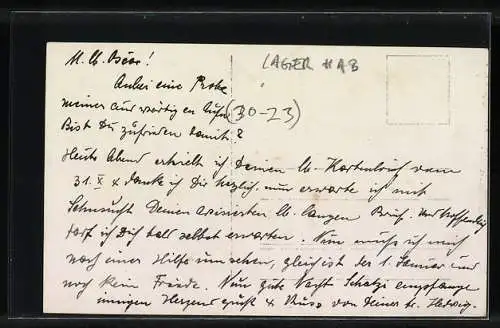 M. lb. Oscar!
LAGER #A8
Anbei eine Probe
meiner auswärtigen
(30-23)
Bist Du zufrieden damit?
Heute Abend erhielt ich Deinen lb. Kartenbrief vom
31. X & danke ich Dir herzlich, nur erwarte ich mit
Sehnsucht Deinen avisierten lb. langen Brief. Und hoffentlich
darf ich Dich bald selbst erwarten. Nun muss ich mich
nach einer Hilfe umsehen, gleich ist der 1. Januar und
noch kein Friede. Nun gute Nacht Schatzi empfange
innigen Herzensgruß & Kuss von Deiner tr. Hedwig.